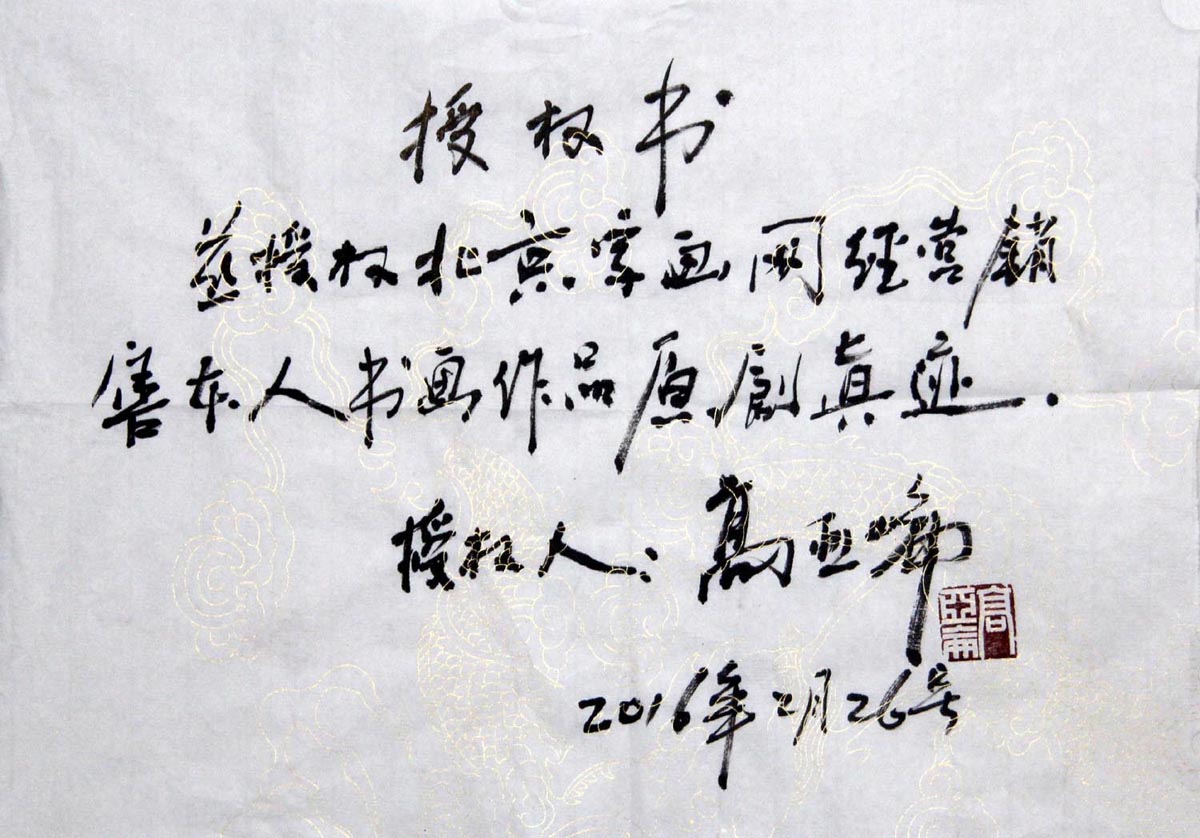 授权书
兹授权北京字画网经营销
售本人书画作品原創真迹.
授权人：高亚
2016年2月26号
高亞